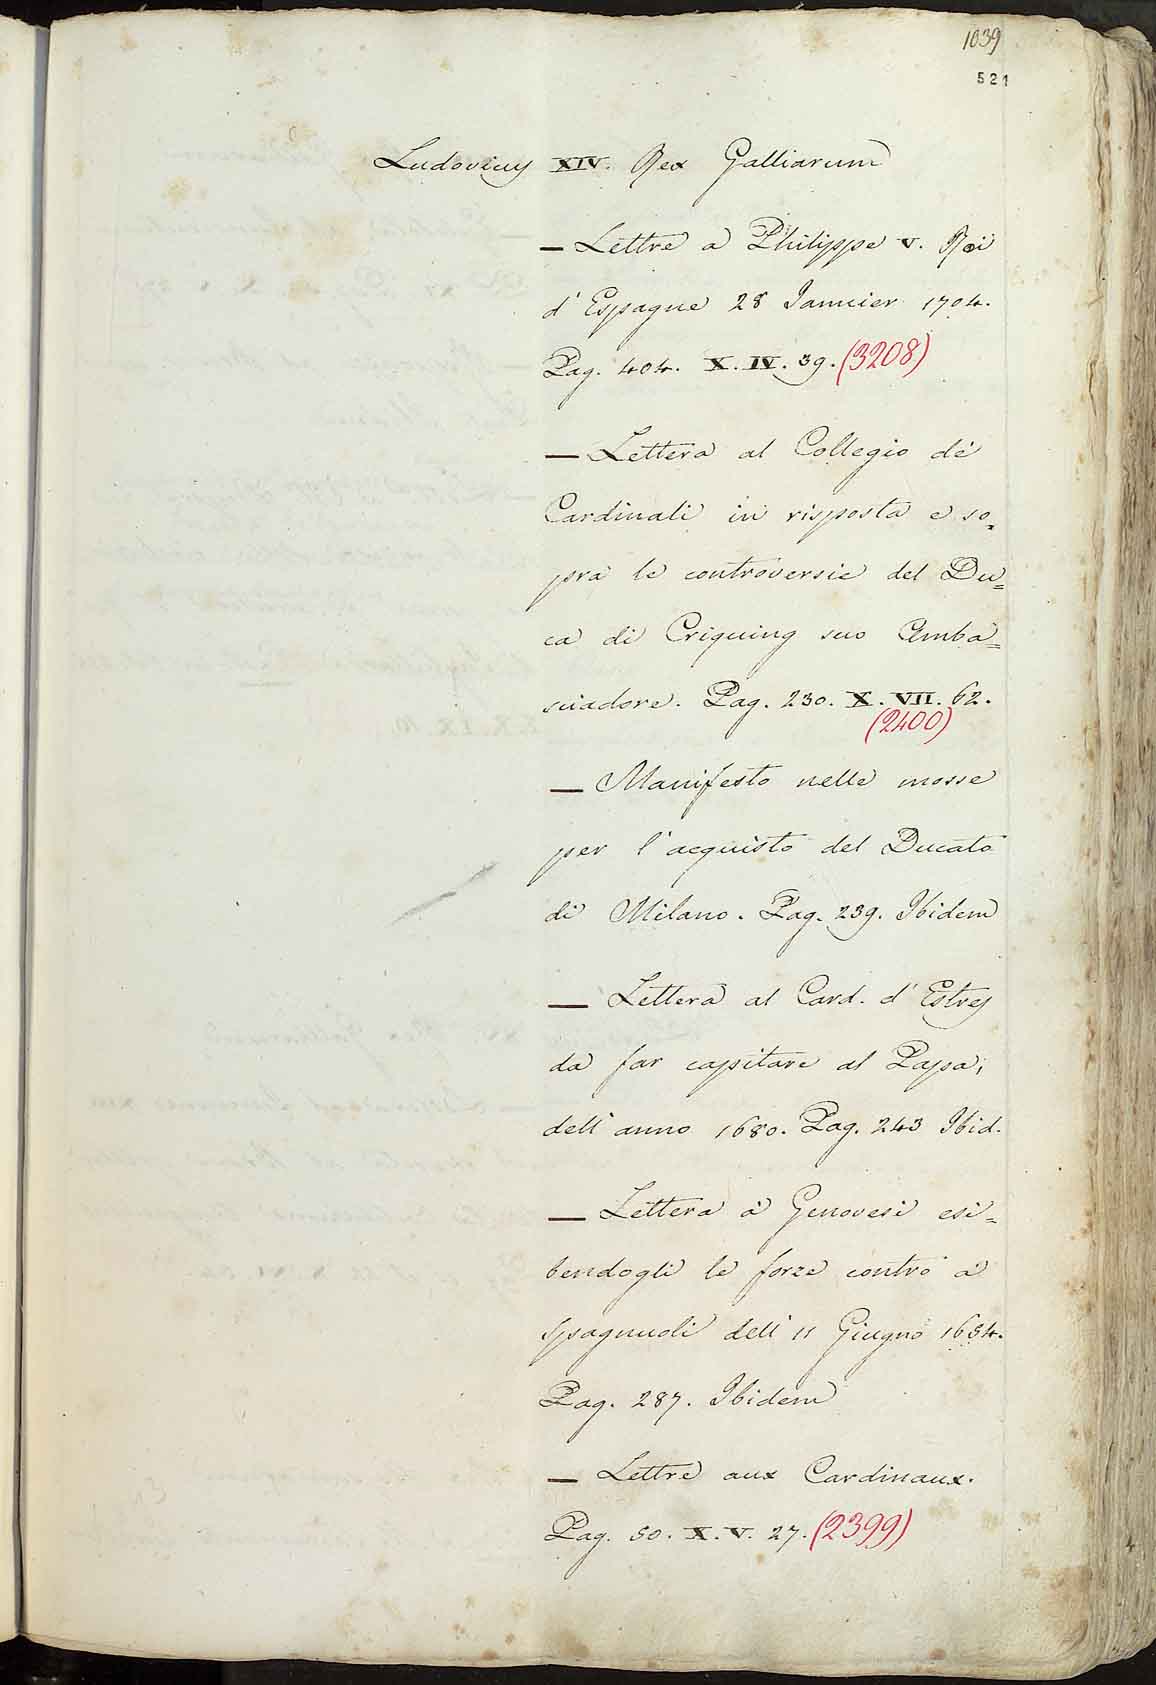 1039
521
Ludovicus XIV. Rex Galliarum
— Lettre a Philippe V. Roi
d'Espagne 28 Janvier 1704.
Pag. 404. X. IV. 39. (3208)
— Lettera al Collegio de'
Cardinali in risposta e so=
pra le controversie del Du=
ca di Criquing suo Amba=
sciadore. Pag. 230. X. VII. 62.
(2400)
— Manifesto nelle mosse
per l'acquisto del Ducato
di Milano. Pag. 239. Ibidem
— Lettera al Card. d'Estres
da far capitare al Papa,
dell'anno 1680. Pag. 243 Ibid.
— Lettera a' Genovesi esi=
bendogli le forze contro a'
Spagnuoli dell'11 Giugno 1654.
Pag. 287. Ibidem
— Lettre aux Cardinaux.
Pag. 50. X. V. 27. (2399)